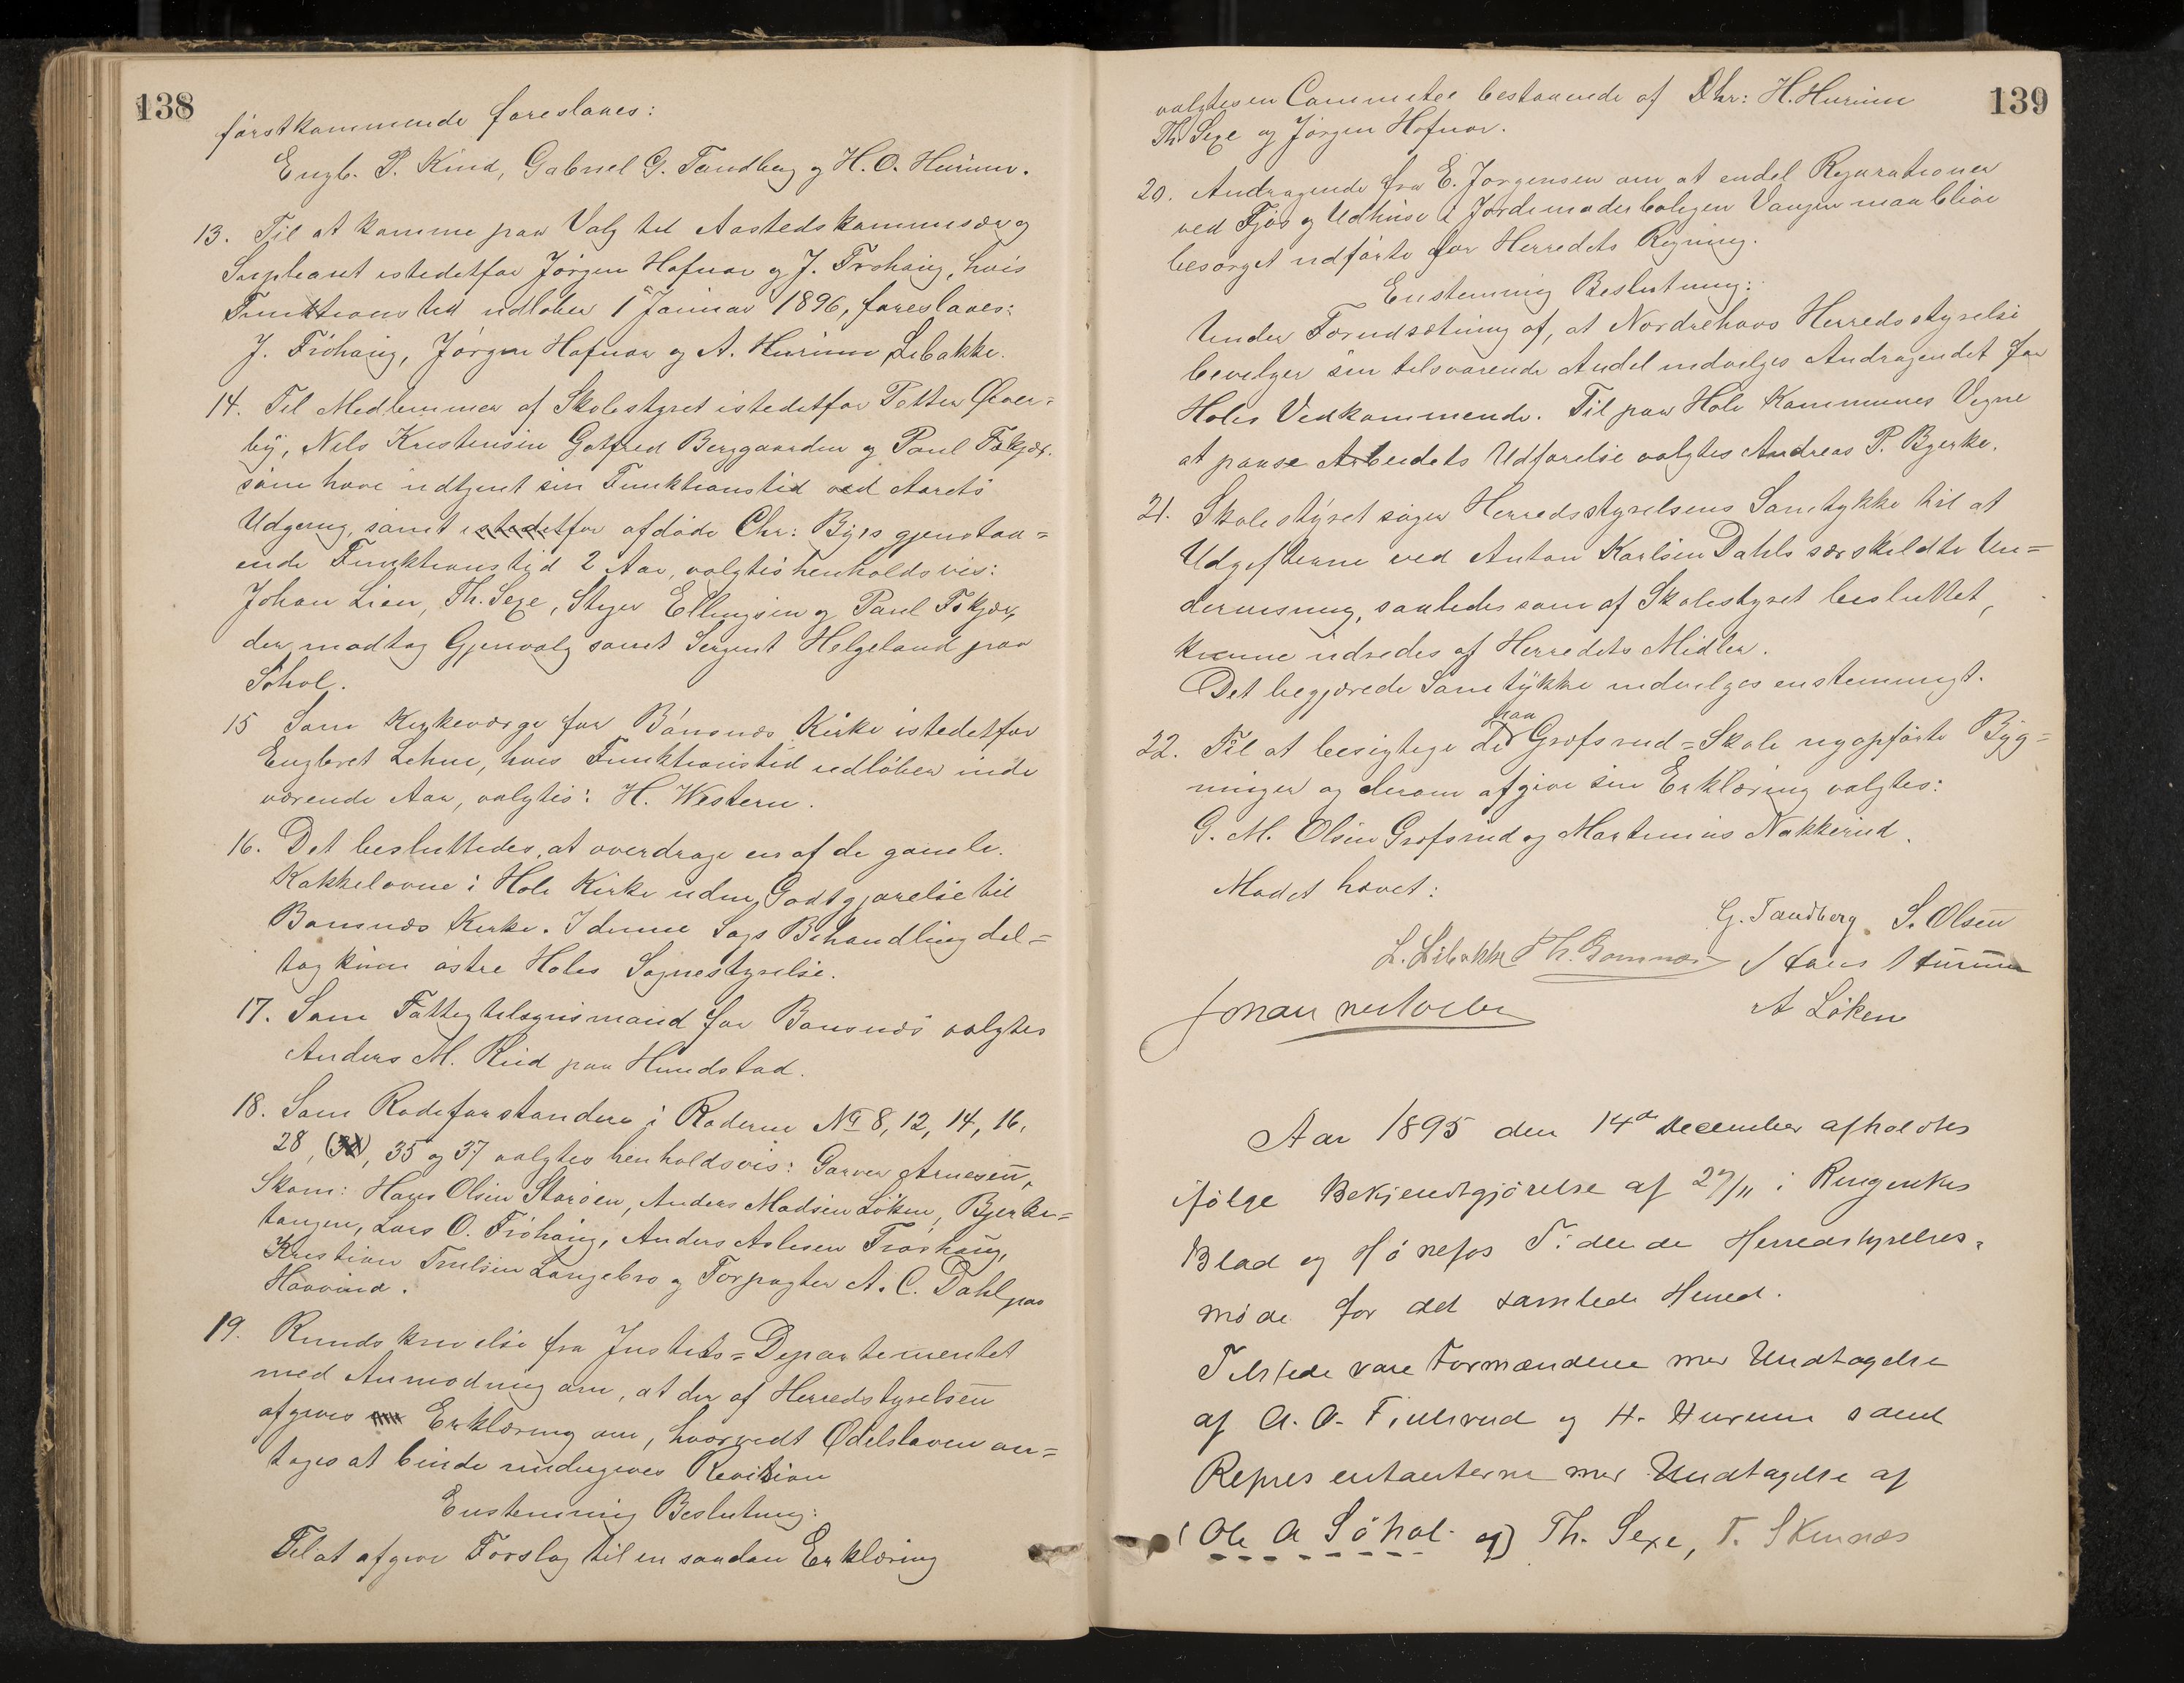 138
förstkommende foreslaaes:
Engb. P. Rud, Gabriel G. Tandberg og H. O. Hurum.
13. Til at komme paa Valg til Aastedskommisær og
Supleant istedetfor Jörgen Hafnor og J. Fröhaug, hvis
Funktionstid udlöber 1ste Januar 1896, foreslaaes:
J. Fröhaug, Jörgen Hafnor og A. Hurum, Libakke.
14. Til Medlemmer af Skolestyret istedetfor Petter Över=
by, Nils Kristensen Gotfred Berggaarden og Paul Fekjær.
som have udtjent sin Funktionstid ved Aarets
Udgang, samt istedetfor afdöde Chr: Byes gjenstaa=
ende Funktionstid 2 Aar, valgtes henholdsvis:
Johan Lien, Th. Sexe, Styer Ellingsen og Paul Fekjær,
der modtog Gjenvalg samt Sergent Helgeland paa
Söhol.
15 Som Kirkeværge for Bönsnæs Kirke istedetfor
Engbret Lehne, hvis Funktionstid udlöber inde
værende Aar, valgtes: H. Western.
16. Det besluttedes, at overdrage en af de gamle
Kakkelovne i Hole Kirke uden Godtgjörelse til
Bönsnæs Kirke. I denne Sags Behandling del=
tog kun östre Holes Sognestyrelse.
17. Som Fattigtilsynsmand for Bönsnæs valgtes
Anders M. Rud paa Hundstad.
18. Som Rodeforstandere i Roderne No 8, 12, 14, 16,
28, (34), 35 og 37 valgtes henholdsvis: Garver Arnesen,
Skom: Hans Olsen Storöen, Anders Madsen Löken, Bjerke=
tangen, Lars O. Fröhaug, Anders Aslesen Fröshaug,
Kristian Trulsen Langebro og Forpagter A. C. Dahl paa
Haavind.
19. Rundskrivelse fra Justits=Departementet
med Anmodning om, at der af Herredstyrelsen
afgives Erklæring om, hvorvidt Odelsloven an=
tages at burde undergives Revision
Enstemmig Beslutning:
Til at afgive Forslag til en saadan Erklæring
139
valgtes en Committee bestaaende af Dhr: H. Hurum
Th. Sexe og Jörgen Hafnor.
20. Andragende fra E. Jörgensen om at endel Reparationer
ved Fjös og Udhuse i Jordemoderboligen Vangen maa blive
besörget udförte for Herredets Regning.
Enstemmig Beslutning:
Under Forudsætning af, at Norderhovs Herredsstyrelse
bevilger sin tilsvarende Andel indvilges Andragendet for
Holes Vedkommende. Til paa Hole Kommunes Vegne
at paase Arbeidets Udförelse valgtes Andreas P. Bjerke.
21. Skolestyret söger Herredsstyrelsens Samtykke til at
Udgifterne ved Anton Karlsen Dahls særskildte Un=
dervisning, saaledes som af Skolestyret besluttet,
kunne udredes af Herredets Midler.
Det begjærede Samtykke indvilges enstemmigt.
22. Til at besigtige de paa Gröfsrud=Skole nyopförte Byg=
ninger og derom afgive sin Erklæring valgtes:
G. M. Olsen Gröfsrud og Martinius Nakkerud.
Mödet hævet:
G. Tandberg. S. Olsen
L. Libakke Th. Bönsnæs Hans Hurum
A Löken
Aar 1895 den 14de December afholdtes
ifölge Bekjendtgjörelse af 27/11 i Ringerikes
Blad og Hönefos Tidende Herredsstyrelses=
möde for det samlede Herred.
Tilstede vare Formændene med Undtagelse
af A. O. Fiulsrud og H. Hurum samt
Repræsentanterne med Undtagelse af
(Ole A Söhol og) Th. Sexe, T. Skurnæs